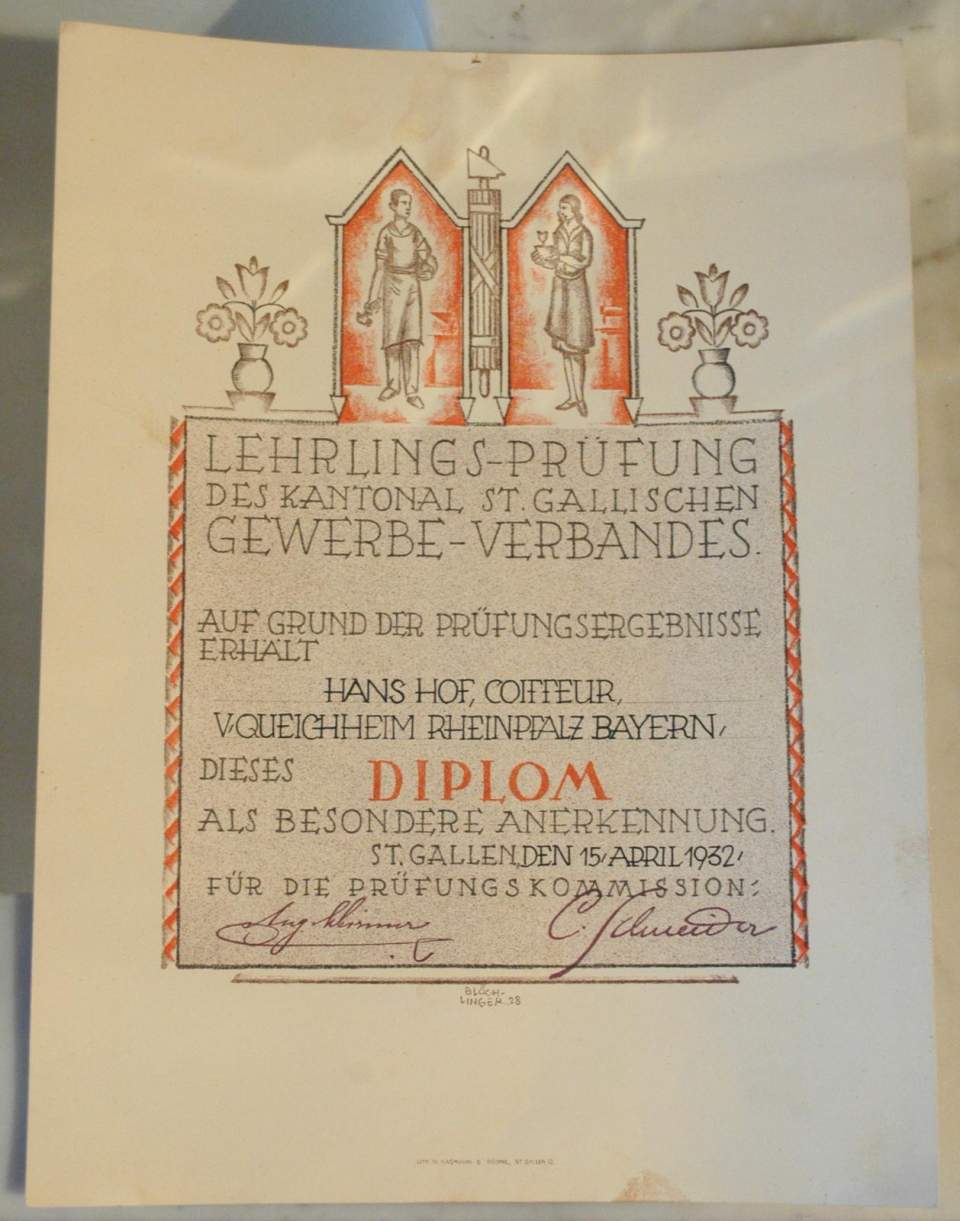 LEHRLINGS-PRÜFUNG
DES KANTONAL ST. GALLISCHEN
GEWERBE-VERBANDES.
AUF GRUND DER PRÜFUNGSERGEBNISSE
ERHÄLT
HANS HOF, COIFFEUR,
V. QUEICHHEIM RHEINPFALZ BAYERN,
DIESES DIPLOM
ALS BESONDERE ANERKENNUNG.
ST. GALLEN, DEN 15, APRIL 1932,
FÜR DIE PRÜFUNGSKOMMISSION:
C. Schneider
BLÖCH-
LINGER 28